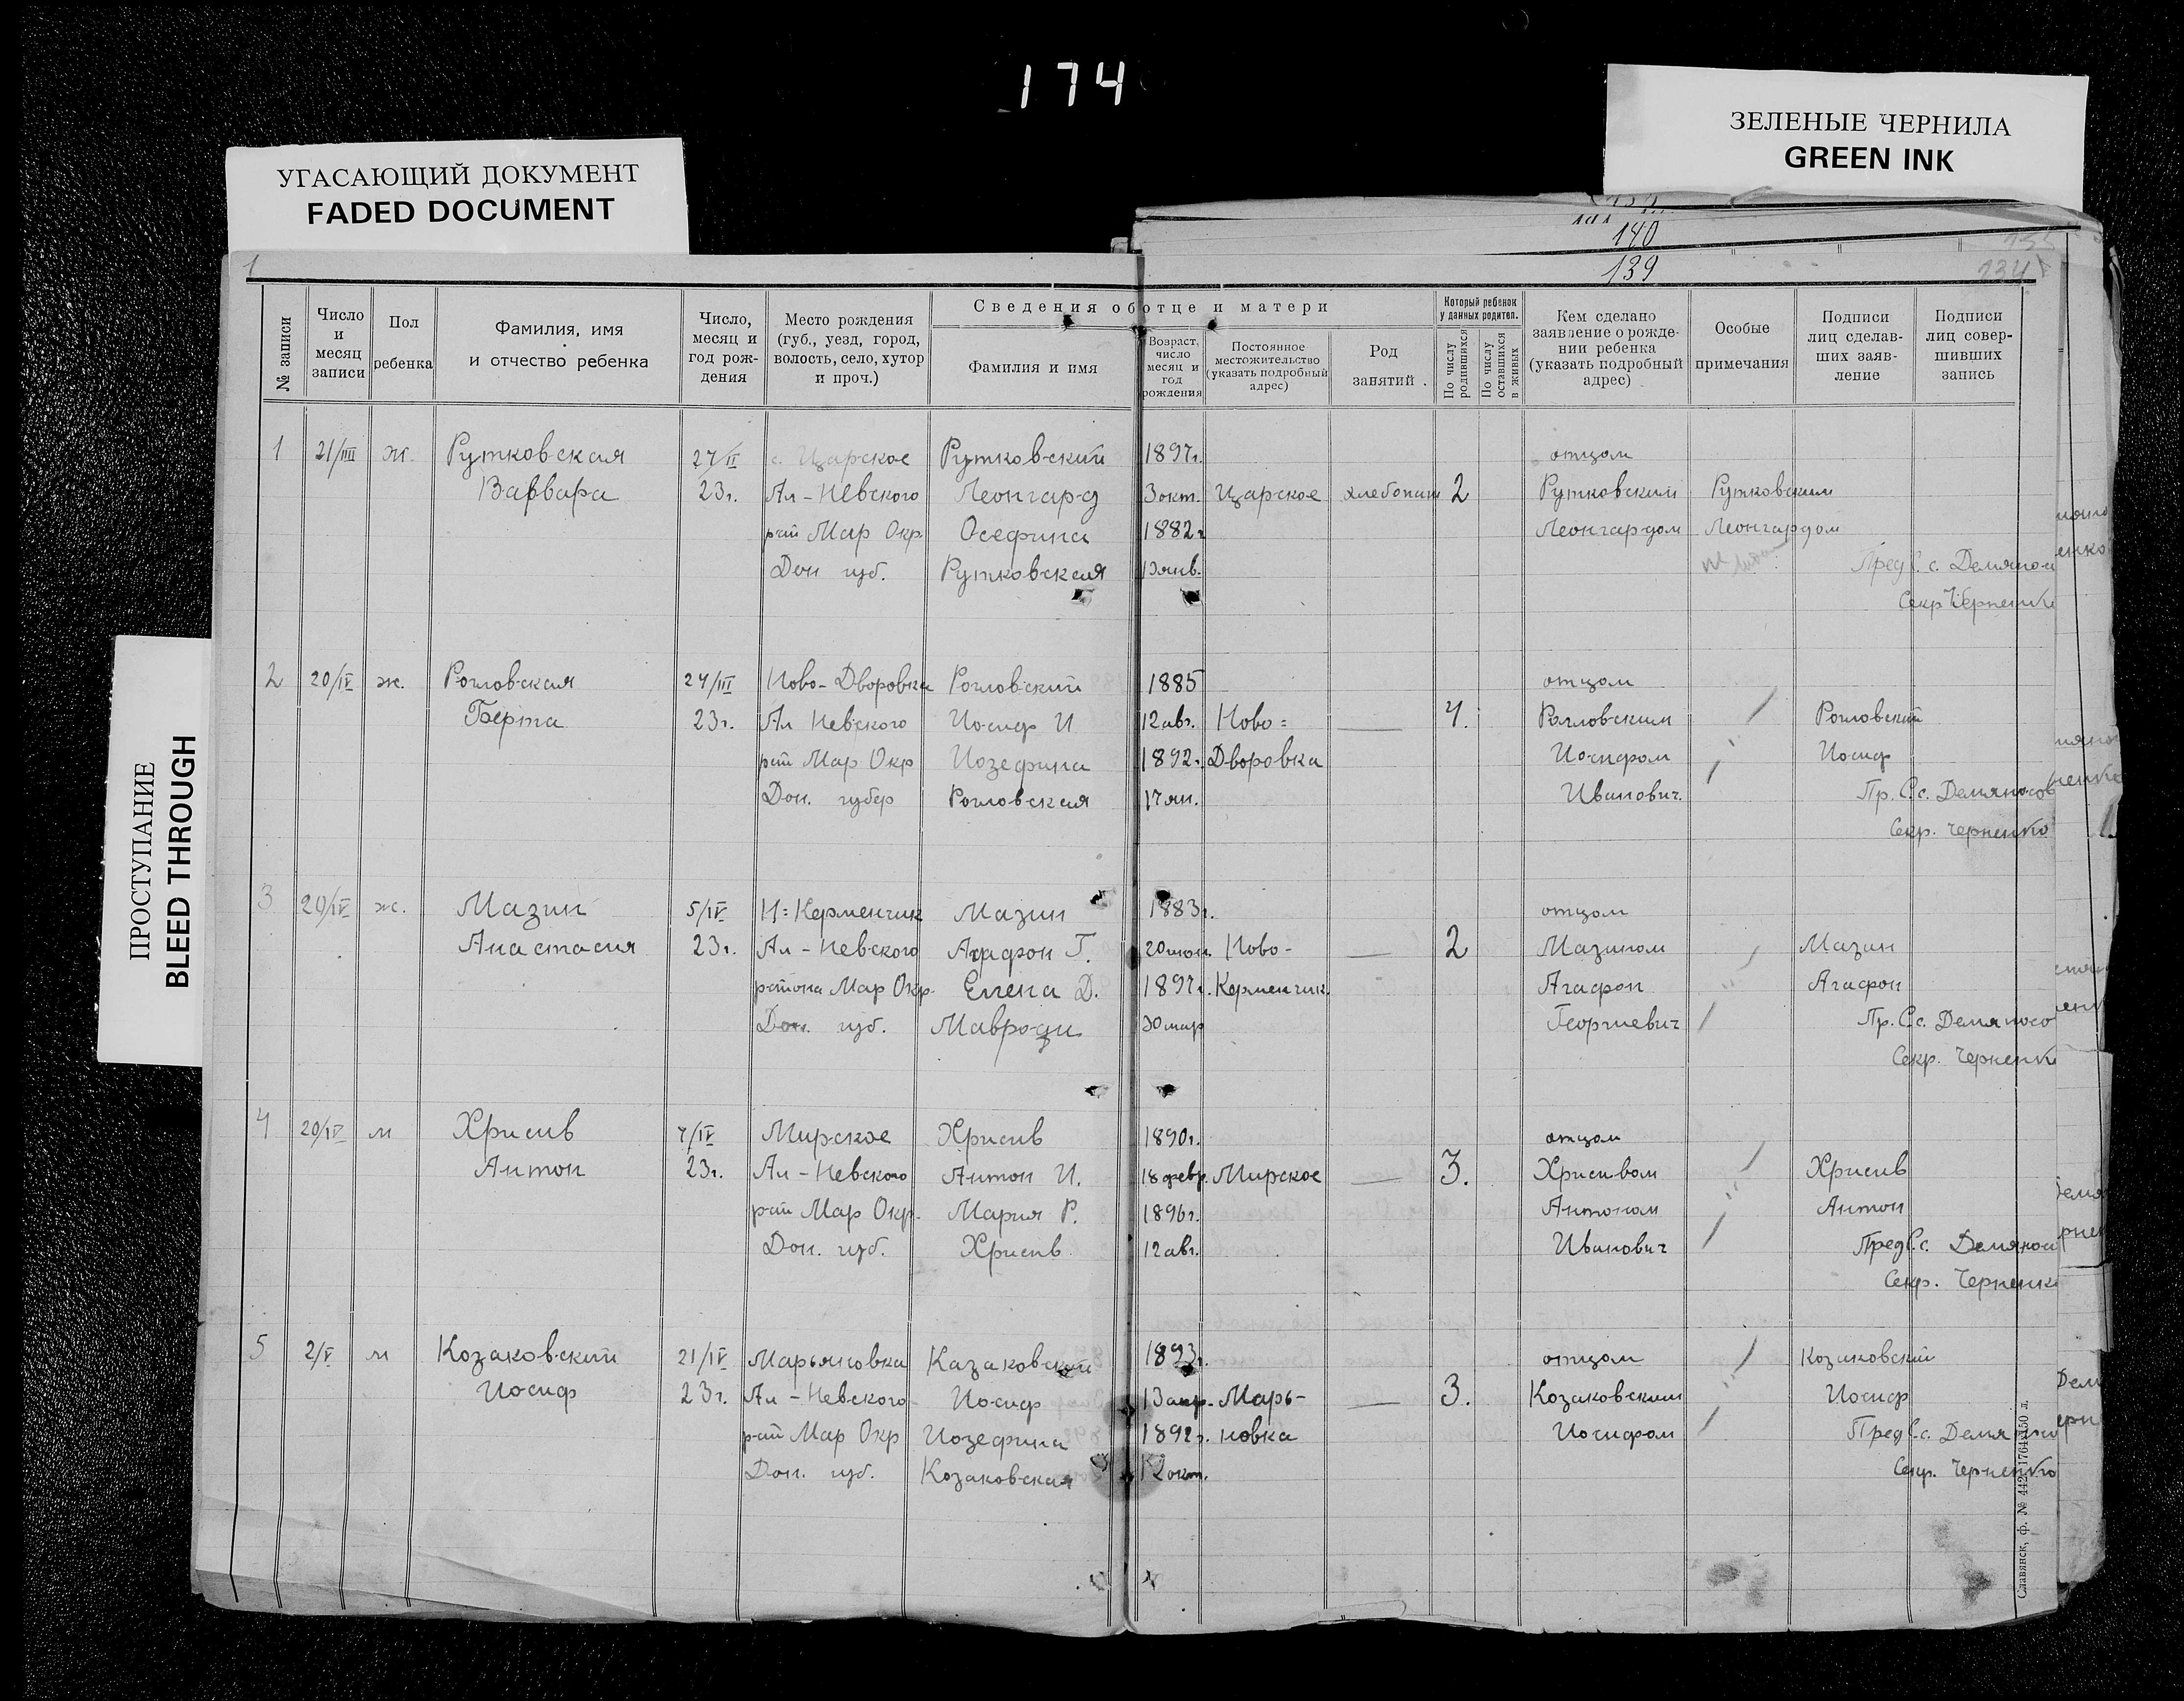 174
ЗЕЛЕНЫЕ ЧЕРНИЛА
GREEN INK
УГАСАЮЩИЙ ДОКУМЕНТ
FADED DOCUMENT
ПРОСТУПАНИЕ
BLEED THROUGH
140
1 139 134
Сведения об отце и матери
Который ребенок у данных родител.
№ записи
Число и месяц записи
Пол ребенка
Фамилия, имя и отчество ребенка
Число, месяц и год рождения
Место рождения (губ., уезд, город, волость, село, хутор и проч.)
Фамилия и имя
Возраст, число месяц и год рождения
Постоянное местожительство (указать подробный адрес)
Род занятий
По числу родившихся
По числу оставшихся в живых
Кем сделано заявление о рождении ребенка (указать подробный адрес)
Особые примечания
Подписи лиц сделавших заявление
Подписи лиц совершивших запись
1 21/III ж. Рутковская 27/II с. Царское Рутковский 1897г. отцом
Варвара 23г. Ал-Невского Леонгард 3 окт. Царское хлебопаш 2 Рутковским Рутковским
рай Мар Окр. Осефина 1882г Леонгардом Леонгардом
Дон губ. Рутковская 13 янв. Пред С. с.
Секр Черненко
2 20/IV ж. Рогловская 24/III Ново-Дворовка Рогловский 1885 отцом
Берта 23г. Ал Невского Иосиф И 12 авг. Ново= — 4. Рогловским Рогловский
рай Мар Окр Иозефина 1892г. Дворовка Иосифом Иосиф
Дон. губер Рогловская 17 ян. Иванович. Пр. С.с. Демяносов
Секр. Черненко
3 20/IV ж. Мазин 5/IV Н=Керменчик Мазин 1883г. отцом
Анастасия 23г. Ал-Невского Агафон Г. 20 июн. Ново- — 2 Мазином Мазин
района Мар Окр. Елена Д. 1897г. Керменчик. Агафон Агафон
Дон. губ. Мавроди 30 мар Георгиевич Пр. С.с. Демяносо
Секр. Черненко
4 20/IV м Хрисив 7/IV Мирское Хрисив 1890г. отцом
Антон 23г. Ал-Невского Антон И. 18 февр. Мирское — 3. Хрисивом Хрисив
рай Мар Окр. Мария Р. 1896г. Антоном Антон
Дон. губ. Хрисив 12 авг. Иванович Пред С.с. Демянос
Секр. Черненк
5 2/V м Козаковский 21/IV Марьяновка Казаковский 1893г. отцом Козаковский
Иосиф 23г. Ал-Невского Иосиф 13 апр. Марь- — 3. Козаковским Иосиф
рай Мар Окр Иозефина 1892г. новка Иосифом Пред С.с.
Дон. губ. Козаковская 12 окт. Секр. Черненко